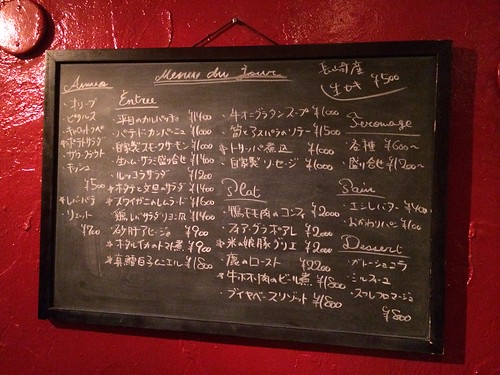 Menu du Jour
長崎産
生ガキ ¥500
Amuse
・オリーブ
・ピクルス
・キャロットラペ
・ポテトサラダ
・ザワークラウト
・キッシュ
¥500
・レバーパテ
・リエット
¥700
Entrée
・平目のカルパッチョ ¥1400
・パテドカンパーニュ ¥1000
・自家製スモークサーモン ¥1000
・生ハム・サラミ盛り合せ ¥1400
・ルッコラサラダ ¥1200
・ホタテと文旦のサラダ ¥1400
・ズワイガニのムラード ¥1600
・砂肝アヒージョ ¥900
・ホタルイカのトマト煮 ¥900
・真鱈白子ムニエル ¥1800
・牛オニグラタンスープ ¥1000
・筍とアスパラのソテー ¥1500
・トリッパ煮込 ¥1000
・自家製ソーセージ ¥1000
Plat
・鴨モモ肉のコンフィ ¥2000
・フォアグラポアレ ¥2000
・豚グリエ ¥2000
・鹿のロースト ¥2200
・牛ホホ肉のビール煮 ¥1800
・ブイヤベースリゾット ¥1800
Fromage
・各種 ¥600〜
・盛り合せ ¥1200〜
Pain
・エシレバター ¥400
・おかわりパン ¥100
Dessert
・ガトーショコラ
・ミルフィユ
・スフレフロマージュ
¥800